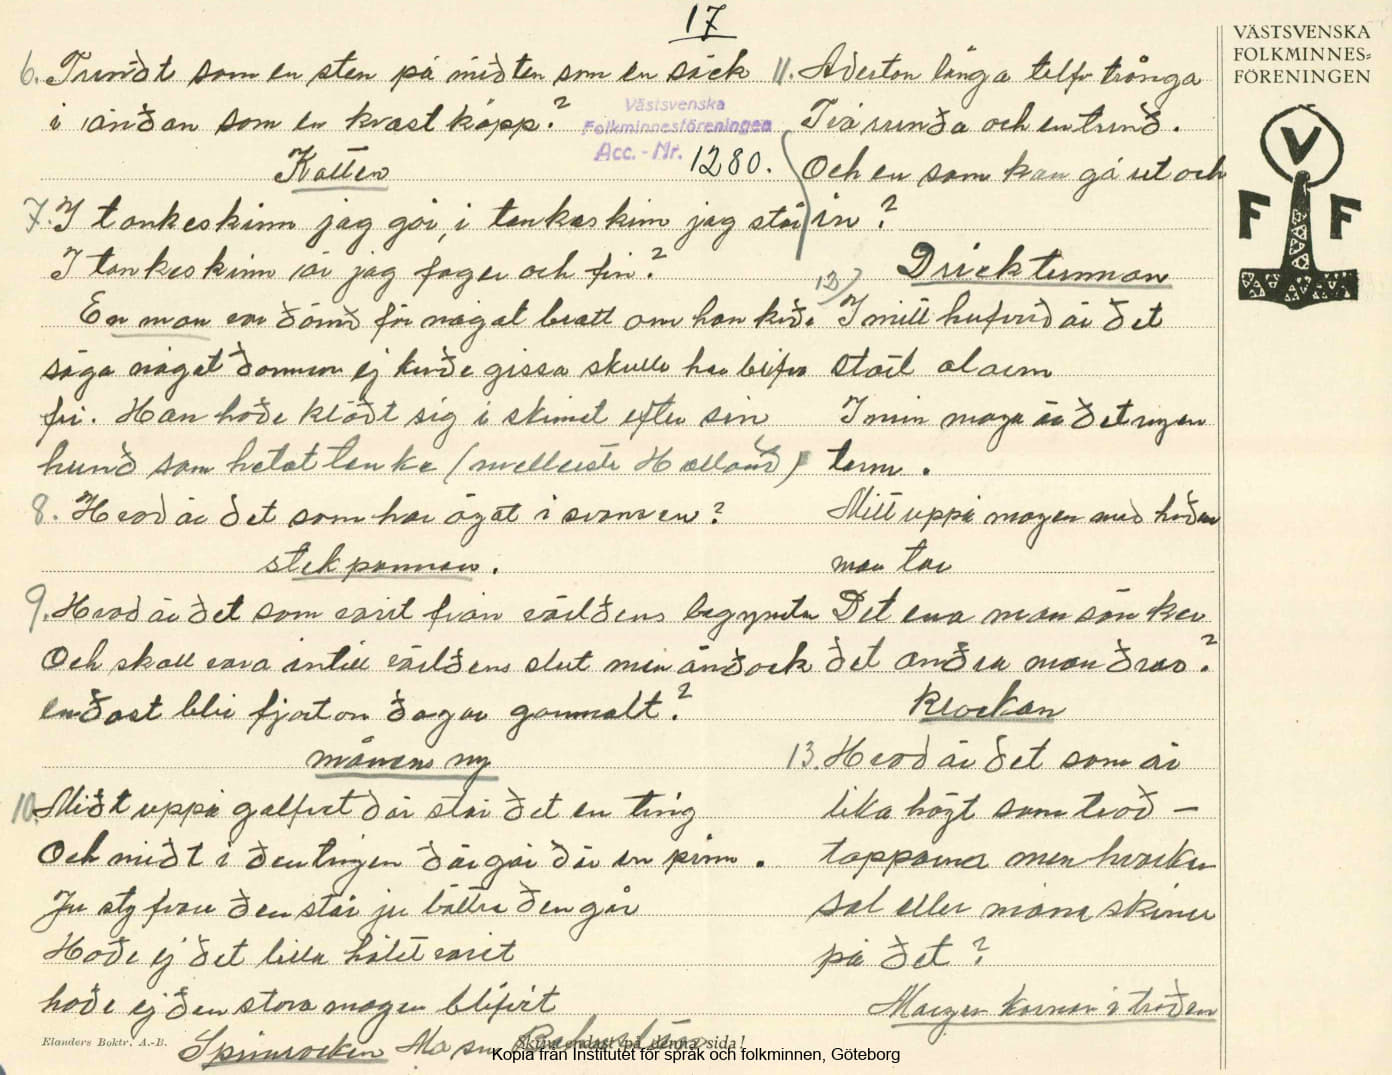 17
6. Trundt som en sten på midten som en säck
i ändan som en kvast käpp?
Katten
7. I tankeskinn jag går, i tankeskinn jag står
I tankeskinn är jag fager och fin?
En man var dömd för något brott om han kude
säga något domaren ej kude gissa skulle han blifva
fri. Han hade klädt sig i skinnet efter sin
hund som hetat tanke (mellersta Halland)
8. Hvad är det som har ögat i svansen?
stekpannan.
9. Hvad är det som varit från världens begynelse
Och skall vara intill världens slut men ändock
endast blir fjorton dagar gammalt?
månens ny
10. Midt uppå golfvet där står det en ting
Och midt i den tingen där går där en pinn.
Ju styfvare den står ju bättre den går
Hade ej det lilla hålet varit
hade ej den stora magen blifvit
Spinnrocken
11. Aderton långa tolf trånga
Två runda och en trind.
Och en som kan gå ut och
in?
Dricktunnan
12) I mitt hufvud är det
stål alarm
I min mage är det ingen
tarm.
Mitt uppå magen med händer
man tar
Det ena man sänker
det andra man drar?
Klockan
13. Hvad är det som är
lika högt som träd-
topparna men hvarken
sol eller måne skiner
på det?
Märgen kärnan i träden
Västsvenska
Folkminnesföreningen
Acc.-Nr. 1280.
VÄSTSVENSKA
FOLKMINNES-
FÖRENINGEN
V
F F
Elanders Boktr. A.-B.
Skriv endast på denna sida!
Kopia från Institutet för språk och folkminnen, Göteborg